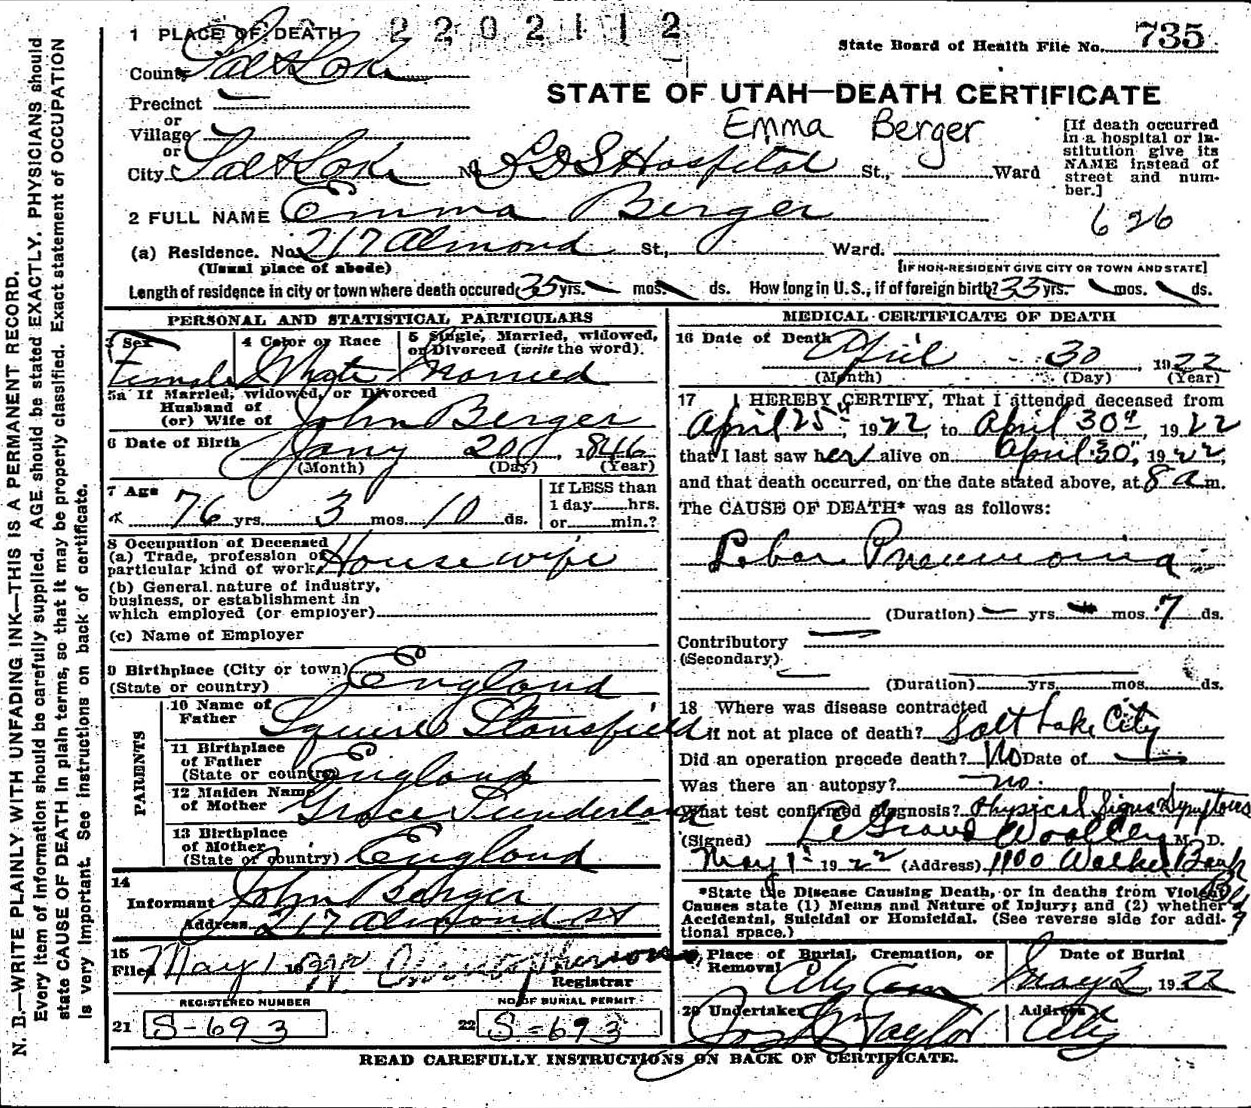 1 PLACE OF DEATH 2202112
State Board of Health File No. 735
County Salt Lake
STATE OF UTAH—DEATH CERTIFICATE
Precinct —
or
Village —
or
Emma Berger
[If death occurred in a hospital or institution give its NAME instead of street and number.]
City Salt Lake No. LDS Hospital St., Ward
626
2 FULL NAME Emma Berger
(a) Residence. No. 217 Almond St., Ward.
(Usual place of abode) [IF NON-RESIDENT GIVE CITY OR TOWN AND STATE]
Length of residence in city or town where death occured 35 yrs. — mos. ds. How long in U.S., if of foreign birth? 33 yrs. — mos. ds.
PERSONAL AND STATISTICAL PARTICULARS
3 Sex Female
4 Color or Race White
5 Single, Married, widowed, or Divorced (write the word). Married
5a If Married, widowed, or Divorced
Husband of
(or) Wife of John Berger
6 Date of Birth Jany 20 1846
(Month) (Day) (Year)
7 Age 76 yrs. 3 mos. 10 ds.
If LESS than
1 day hrs.
or min.?
8 Occupation of Deceased
(a) Trade, profession or
particular kind of work House wife
(b) General nature of industry,
business, or establishment in
which employed (or employer)
(c) Name of Employer
9 Birthplace (City or town)
(State or country) England
PARENTS
10 Name of
Father Squire Stansfield
11 Birthplace
of Father
(State or country) England
12 Maiden Name
of Mother Grace Sunderland
13 Birthplace
of Mother
(State or country) England
14
Informant John Berger
Address 217 Almond St
15
Filed May 1 19
Registrar
REGISTERED NUMBER
21 S-693
NO. OF BURIAL PERMIT
22 S-693
MEDICAL CERTIFICATE OF DEATH
16 Date of Death April 30, 1922
(Month) (Day) (Year)
17 I HEREBY CERTIFY, That I attended deceased from
April 25th, 1922, to April 30th 1922
that I last saw her alive on April 30, 1922,
and that death occurred, on the date stated above, at 8 a m.
The CAUSE OF DEATH* was as follows:
Lobar Pneumonia
(Duration) — yrs. — mos. 7 ds.
Contributory —
(Secondary) —
(Duration) yrs. mos. ds.
18 Where was disease contracted
if not at place of death? Salt Lake City
Did an operation precede death? No Date of —
Was there an autopsy? no.
What test confirmed diagnosis? Physical Signs & Symptoms
(Signed) LeGrand Woolley M. D.
May 1st 1922 (Address) 1100 Walker Bank Bldg
*State the Disease Causing Death, or in deaths from Violent
Causes state (1) Means and Nature of Injury; and (2) whether
Accidental, Suicidal or Homicidal. (See reverse side for addi-
tional space.)
19 Place of Burial, Cremation, or
Removal City Cem
Date of Burial
May 2, 1922
20 Undertaker Jos Wm Taylor
Address City
READ CAREFULLY INSTRUCTIONS ON BACK OF CERTIFICATE.
N. B.—WRITE PLAINLY WITH UNFADING INK—THIS IS A PERMANENT RECORD.
Every item of information should be carefully supplied. AGE should be stated EXACTLY. PHYSICIANS should
state CAUSE OF DEATH in plain terms, so that it may be properly classified. Exact statement of OCCUPATION
is very important. See instructions on back of certificate.